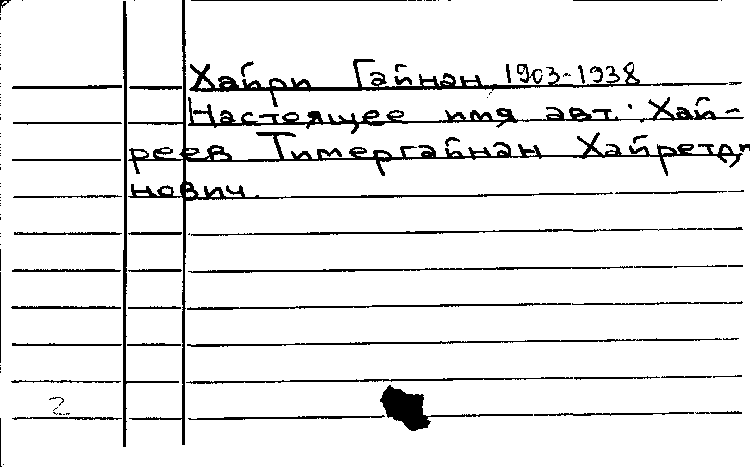 Хайри Гайнан 1903-1938
Настоящее имя авт.: Хай-
реев Тимергайнан Хайретди
нович.
2